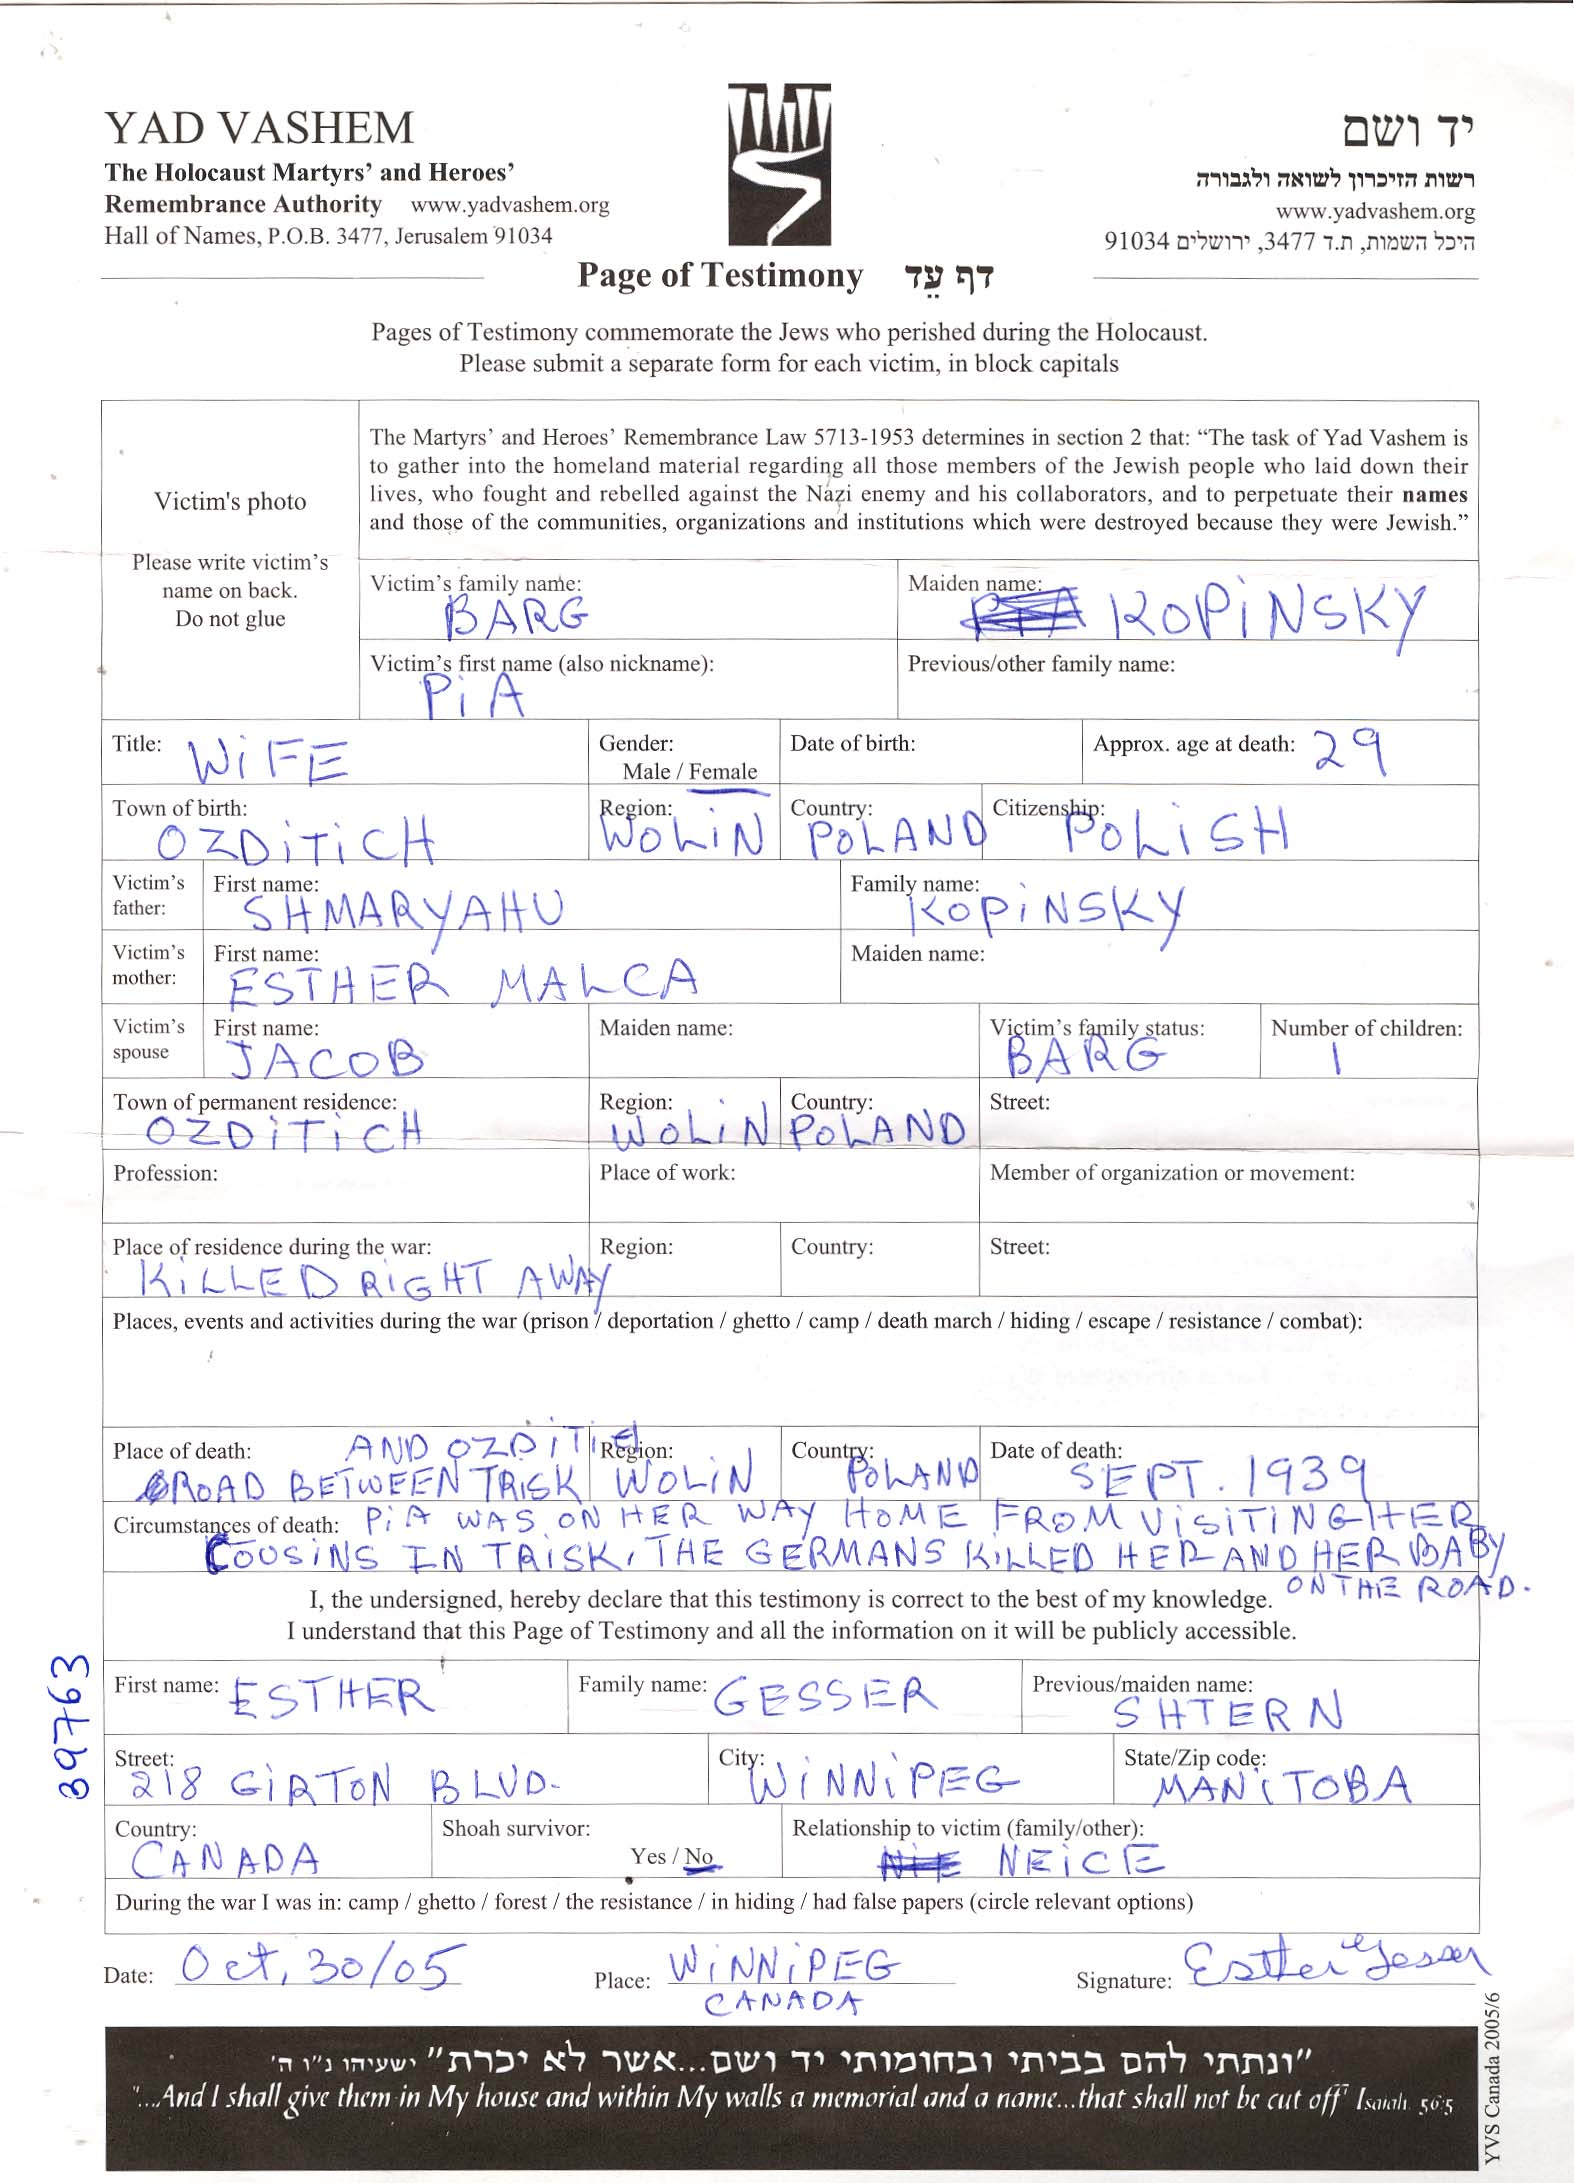 YAD VASHEM
The Holocaust Martyrs’ and Heroes’
Remembrance Authority www.yadvashem.org
Hall of Names, P.O.B. 3477, Jerusalem 91034
יד ושם
רשות הזיכרון לשואה ולגבורה
www.yadvashem.org
היכל השמות, ת.ד 3477, ירושלים 91034
Page of Testimony דף עֵד
Pages of Testimony commemorate the Jews who perished during the Holocaust.
Please submit a separate form for each victim, in block capitals
Victim's photo
Please write victim’s
name on back.
Do not glue
The Martyrs’ and Heroes’ Remembrance Law 5713-1953 determines in section 2 that: “The task of Yad Vashem is
to gather into the homeland material regarding all those members of the Jewish people who laid down their
lives, who fought and rebelled against the Nazi enemy and his collaborators, and to perpetuate their names
and those of the communities, organizations and institutions which were destroyed because they were Jewish.”
Victim’s family name: BARG
Maiden name: KOPINSKY
Victim’s first name (also nickname): PIA
Previous/other family name:
Title: WIFE
Gender: Male / Female
Date of birth:
Approx. age at death: 29
Town of birth: OZDITICH
Region: WOLIN
Country: POLAND
Citizenship: POLISH
Victim’s father: First name: SHMARYAHU
Family name: KOPINSKY
Victim’s mother: First name: ESTHER MALCA
Maiden name:
Victim’s spouse First name: JACOB
Maiden name:
Victim’s family status: BARG
Number of children: 1
Town of permanent residence: OZDITICH
Region: WOLIN
Country: POLAND
Street:
Profession:
Place of work:
Member of organization or movement:
Place of residence during the war: KILLED RIGHT AWAY
Region:
Country:
Street:
Places, events and activities during the war (prison / deportation / ghetto / camp / death march / hiding / escape / resistance / combat):
Place of death: ROAD BETWEEN TRISK AND
Region: WOLIN
Country: POLAND
Date of death: SEPT. 1939
Circumstances of death: PIA WAS ON HER WAY HOME FROM VISITING HER
COUSINS IN TRISK, THE GERMANS KILLED HER AND HER BABY
ON THE ROAD.
I, the undersigned, hereby declare that this testimony is correct to the best of my knowledge.
I understand that this Page of Testimony and all the information on it will be publicly accessible.
39763
First name: ESTHER
Family name: GESSER
Previous/maiden name: SHTERN
Street: 218 GIRTON BLVD.
City: WINNIPEG
State/Zip code: MANITOBA
Country: CANADA
Shoah survivor: Yes / No
Relationship to victim (family/other): NEICE
During the war I was in: camp / ghetto / forest / the resistance / in hiding / had false papers (circle relevant options)
Date: Oct, 30/05
Place: WINNIPEG
CANADA
Signature: Esther Gesser
YVS Canada 2005/6
"ונתתי להם בביתי ובחומותי יד ושם...אשר לא יכרת" ישעיהו נ"ו ה'
"...And I shall give them in My house and within My walls a memorial and a name...that shall not be cut off" Isaiah 56:5